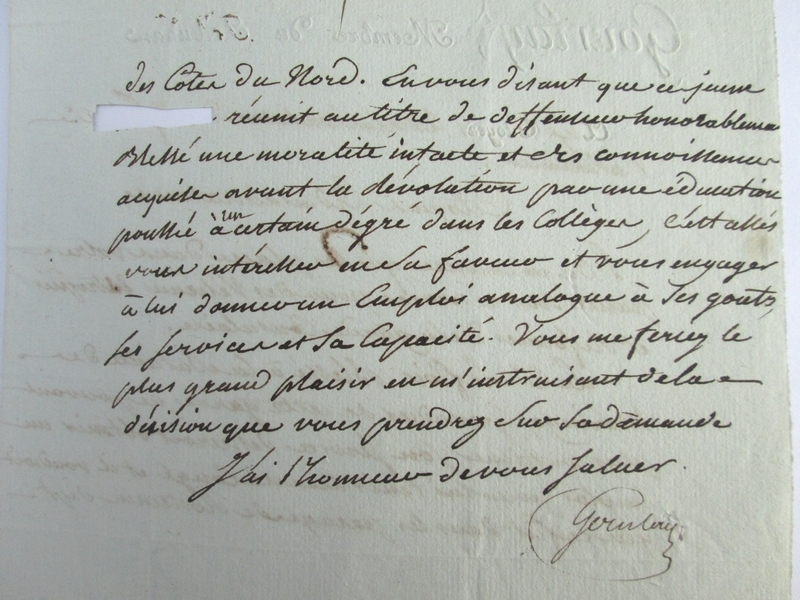 des Côtes du Nord. En vous disant que ce jeune
réunit au titre de deffenseur honorablement
Blessé une moralité intacte et des connoissances
acquises avant la Révolution par une éducation
poussé à un certain dégré dans les Collèges, c'est assés
vous intéresser en sa faveur et vous engager
à lui donner un Emploi analogue à ses gouts,
ses services et sa Capacité. Vous me feriez le
plus grand plaisir en m'instruisant de la
décision que vous prendrez Sur Sa demande
J'ai l'honneur de vous Saluer.
Gourlay